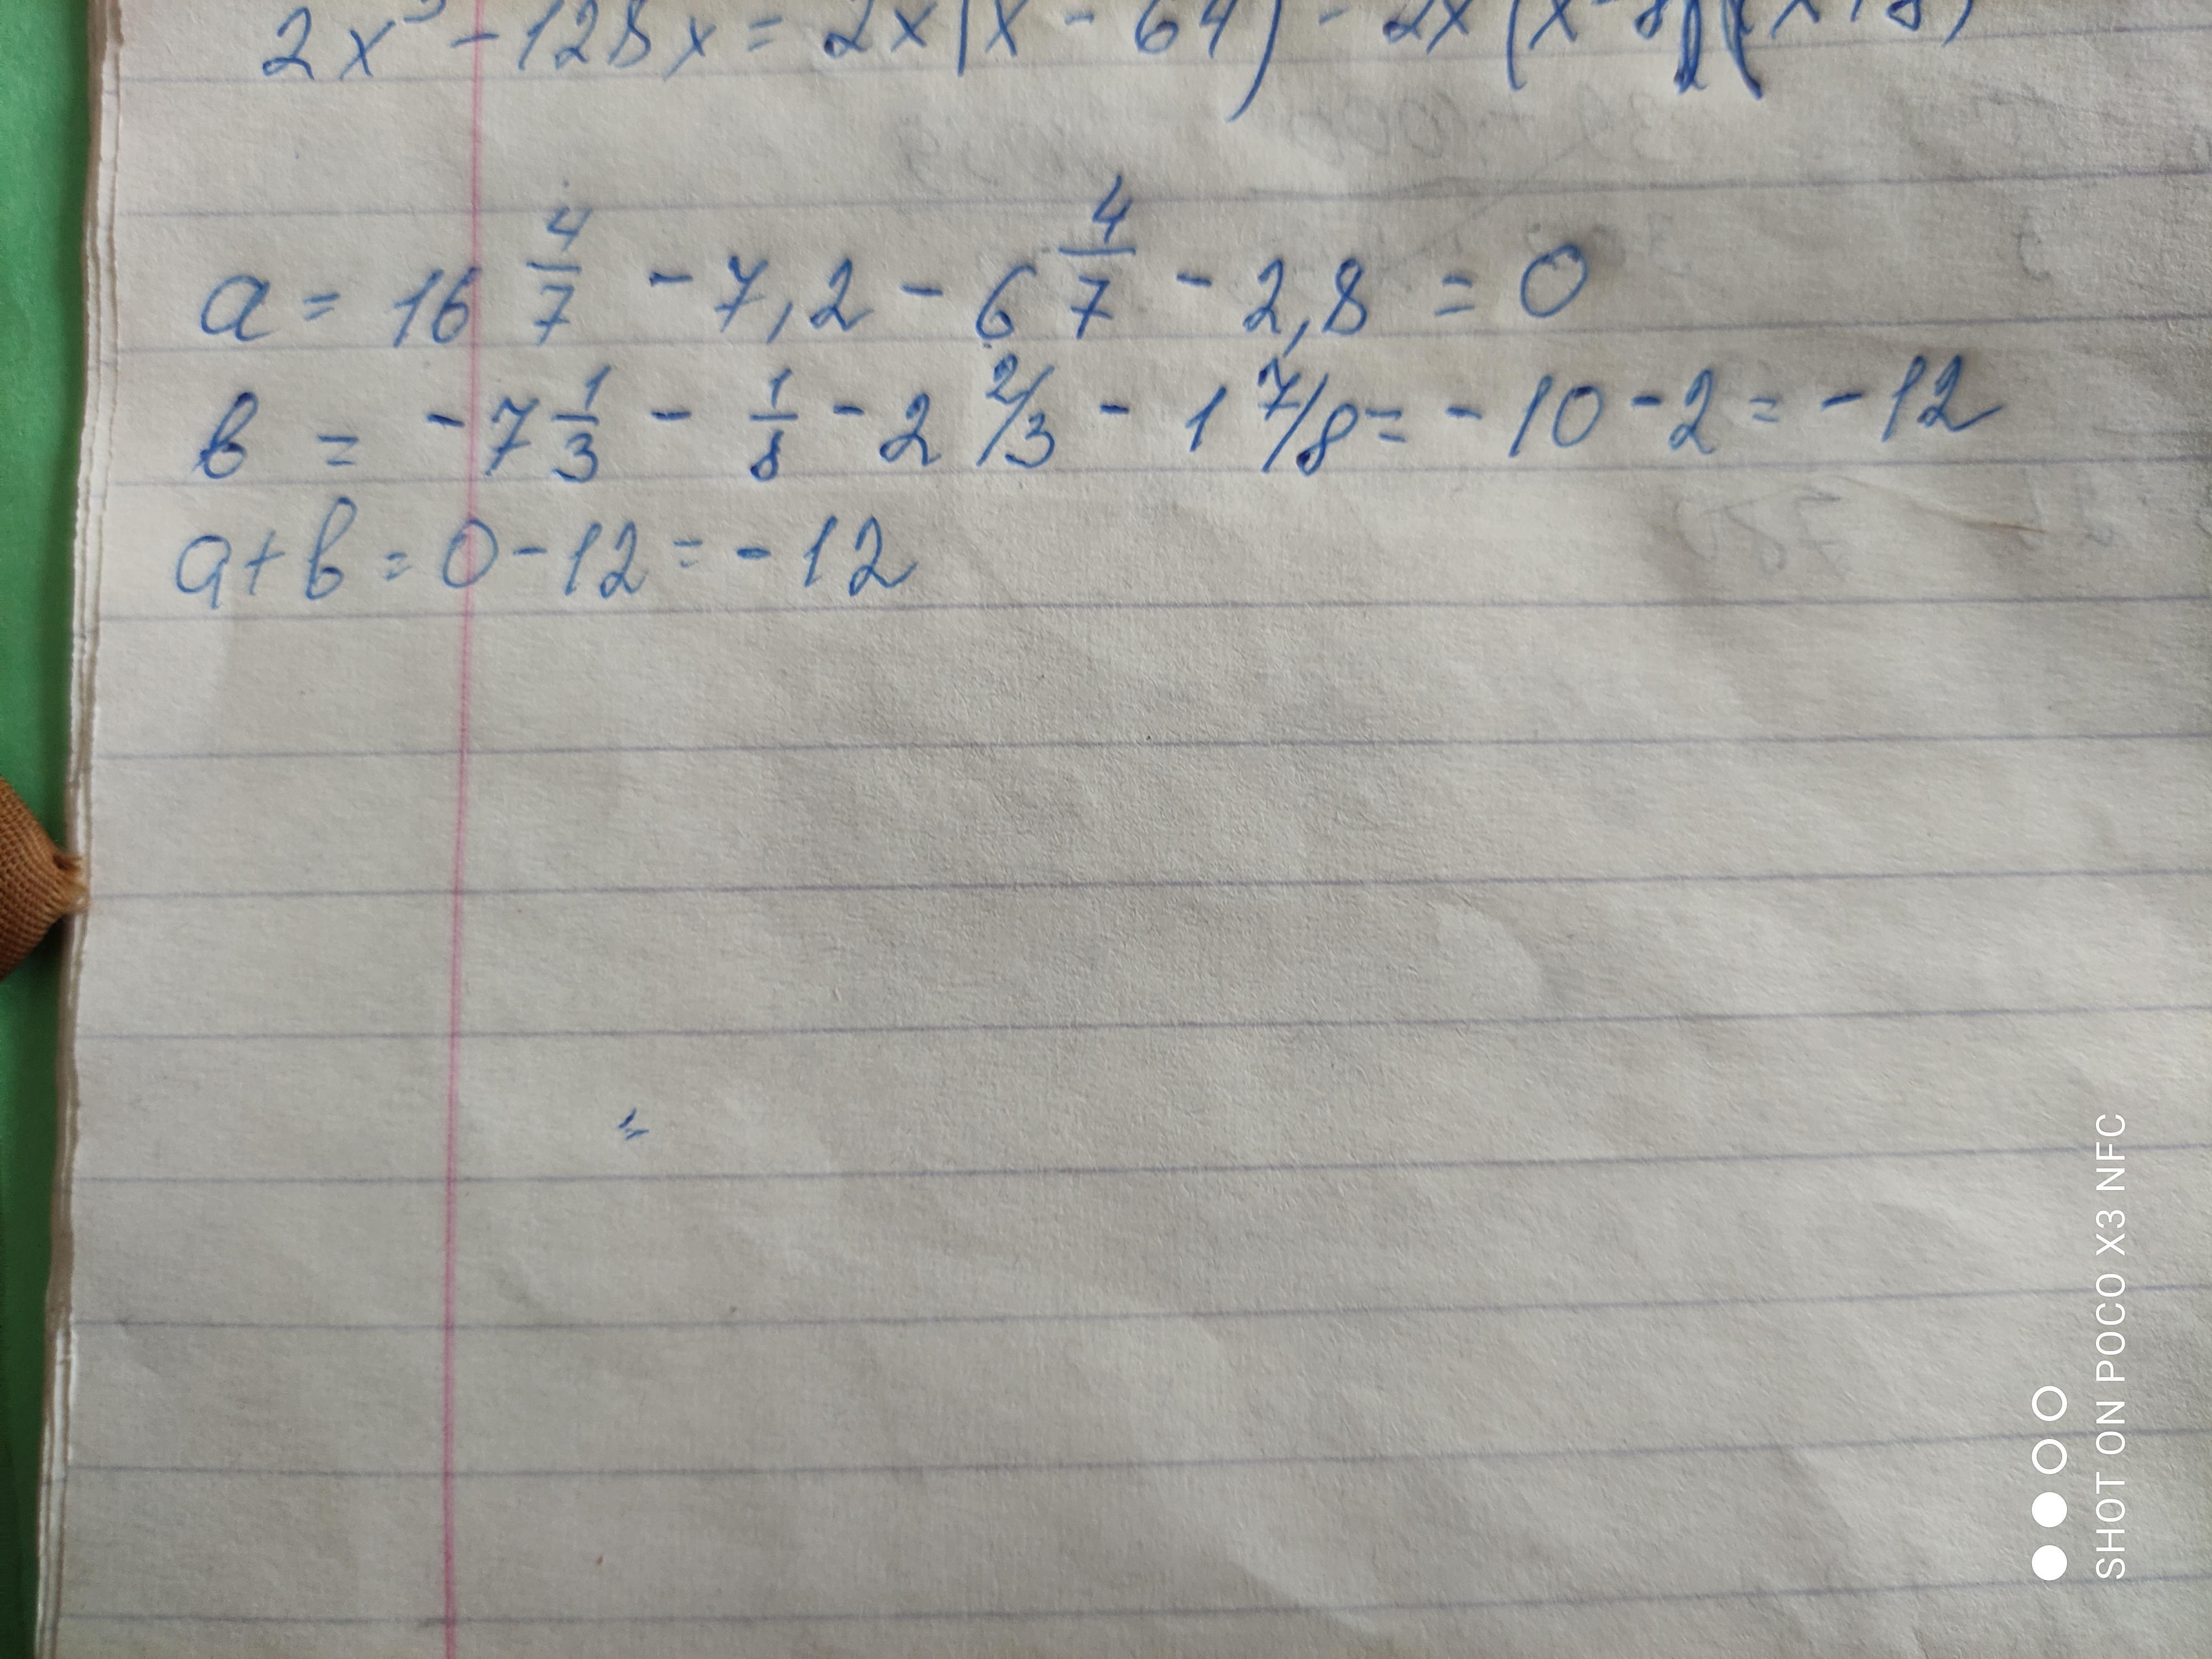 2x³ - 128x = 2x(x - 64) - 2x(x-8)(x+8)
a = 16 4/7 - 7,2 - 6 4/7 - 2,8 = 0
b = -7 1/3 - 1/8 - 2 2/3 - 1 7/8 = -10 - 2 = -12
a+b = 0 - 12 = -12
=
SHOT ON POCO X3 NFC